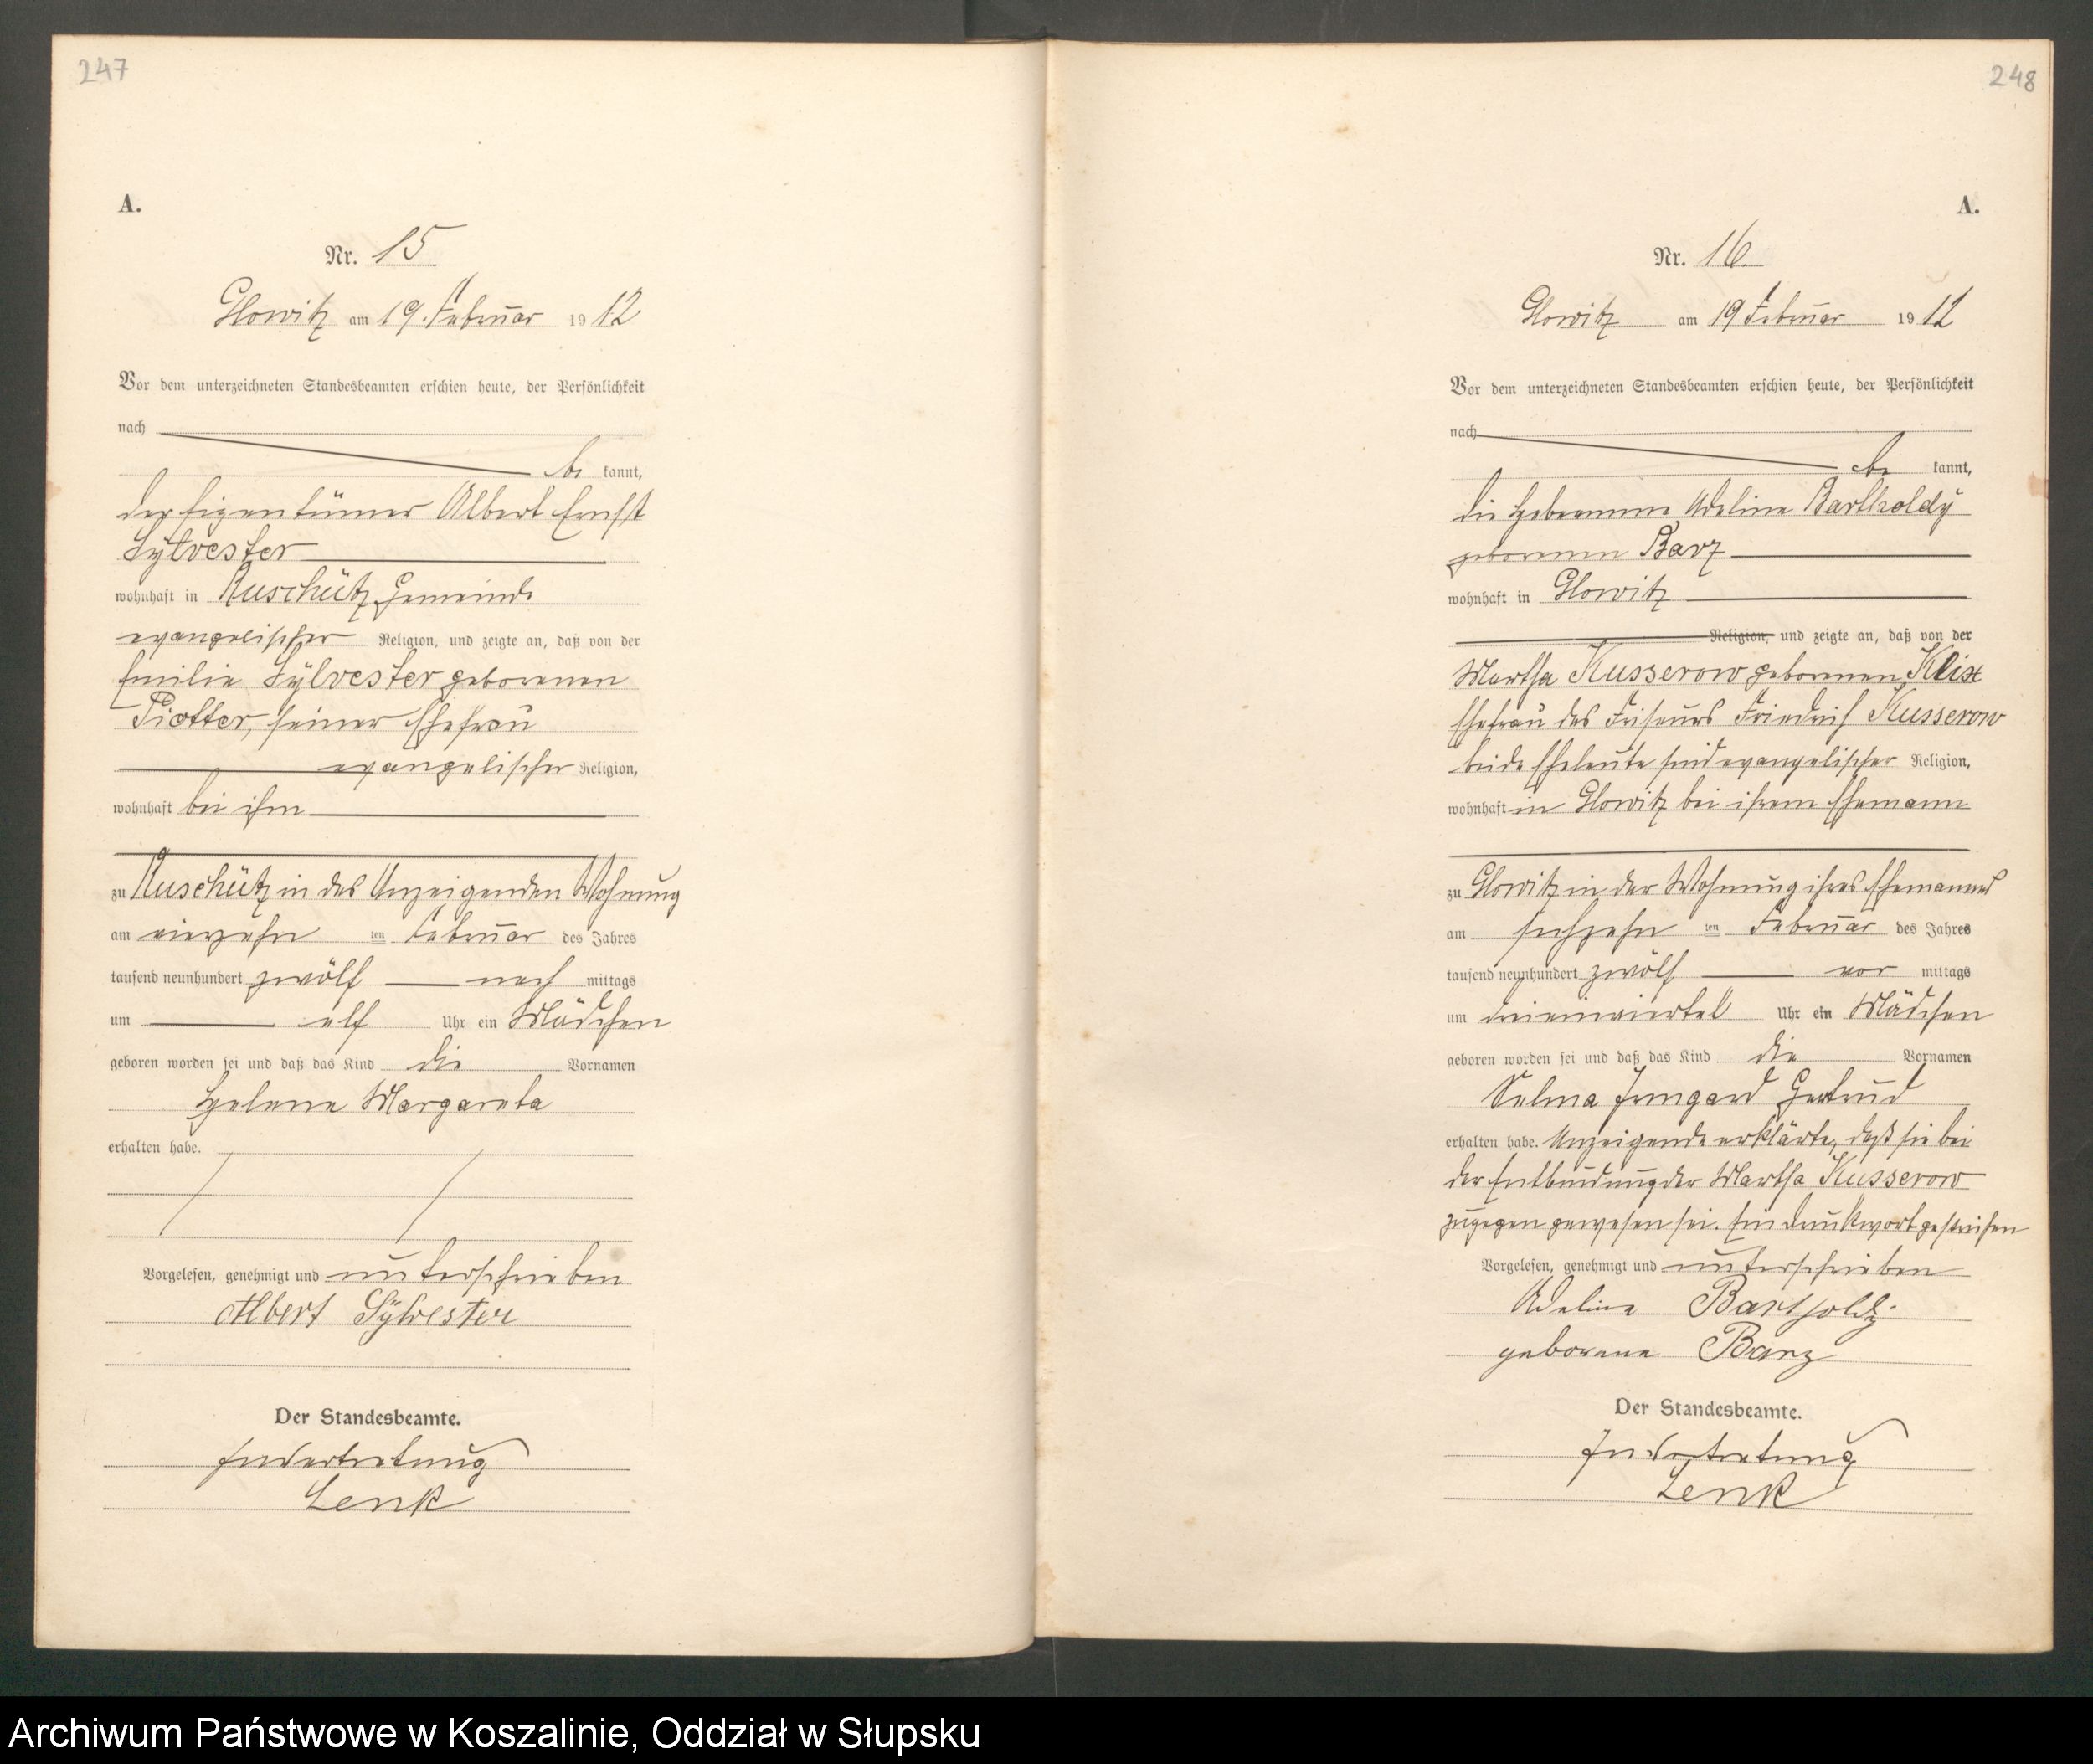 247
A.
Nr. 15
Glowitz am 19. Februar 1912
Vor dem unterzeichneten Standesbeamten erschien heute, der Persönlichkeit
nach
be kannt,
der Eigentümer Albert Ernst
Sylvester
wohnhaft in Ruschütz Gemeinde
evangelischer Religion, und zeigte an, daß von der
Emilie Sylvester geborenen
Piotter, seiner Ehefrau
evangelischer Religion,
wohnhaft bei ihm
zu Ruschütz in des Anzeigenden Wohnung
am vierzehn ten Februar des Jahres
tausend neunhundert zwölf nach mittags
um elf Uhr ein Mädchen
geboren worden sei und daß das Kind die Vornamen
Helene Margareta
erhalten habe.
Vorgelesen, genehmigt und unterschrieben
Albert Sylvester
Der Standesbeamte.
In Vertretung
Lenk
248
A.
Nr. 16.
Glowitz am 19 Februar 1912
Vor dem unterzeichneten Standesbeamten erschien heute, der Persönlichkeit
nach
be kannt,
die Hebamme Adeline Bartholdy
geborenen Barz
wohnhaft in Glowitz
Religion, und zeigte an, daß von der
Martha Kusserow geborenen Klix
Ehefrau des Friseurs Friedrich Kusserow
beide Eheleute sind evangelischer Religion,
wohnhaft in Glowitz bei ihrem Ehemann
zu Glowitz in der Wohnung ihres Ehemannes
am sechzehn ten Februar des Jahres
tausend neunhundert zwölf vor mittags
um dreieinviertel Uhr ein Mädchen
geboren worden sei und daß das Kind die Vornamen
Selma Irmgard Gertrud
erhalten habe. Anzeigende erklärte, daß sie bei
der Entbindung der Martha Kusserow
zugegen gewesen sei. Ein Druckwort gestrichen
Vorgelesen, genehmigt und unterschrieben
Adeline Bartholdy
geborene Barz
Der Standesbeamte.
In Vertretung
Lenk
Archiwum Państwowe w Koszalinie, Oddział w Słupsku